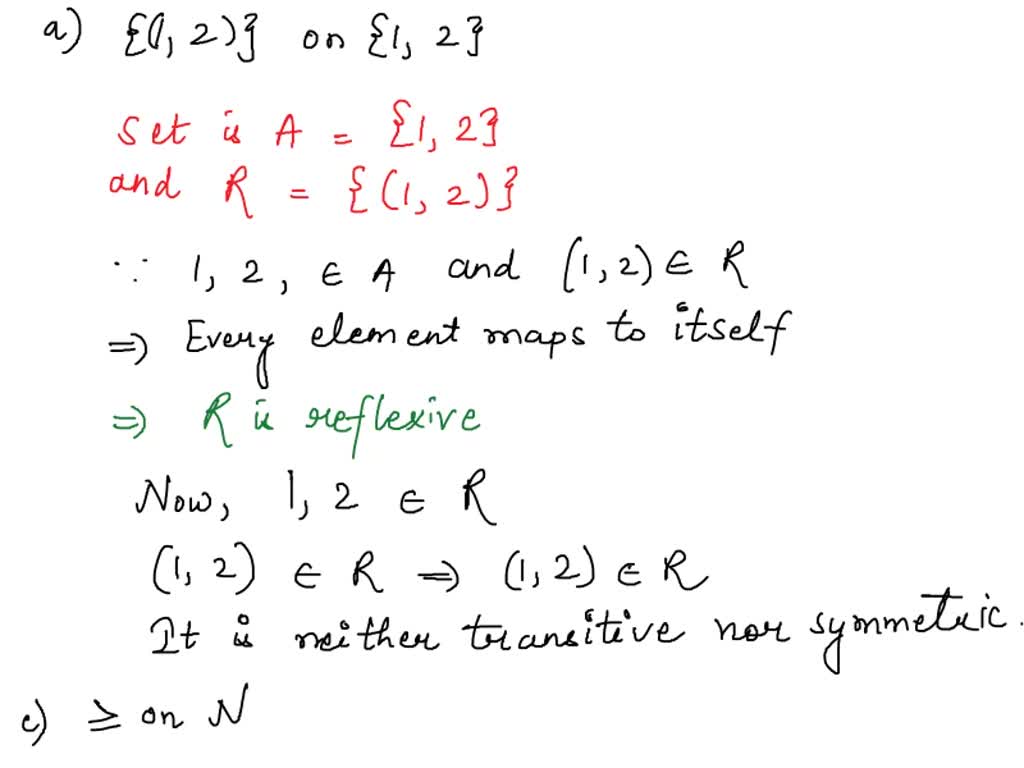 a) {(1, 2)} on {1, 2}
Set is A = {1, 2}
and R = {(1, 2)}
∵ 1, 2, ∈ A and (1, 2) ∈ R
⇒ Every element maps to itself
⇒ R is reflexive
Now, 1, 2 ∈ R
(1, 2) ∈ R ⇒ (1, 2) ∈ R
It is neither transitive nor symmetric.
c) ≥ on N